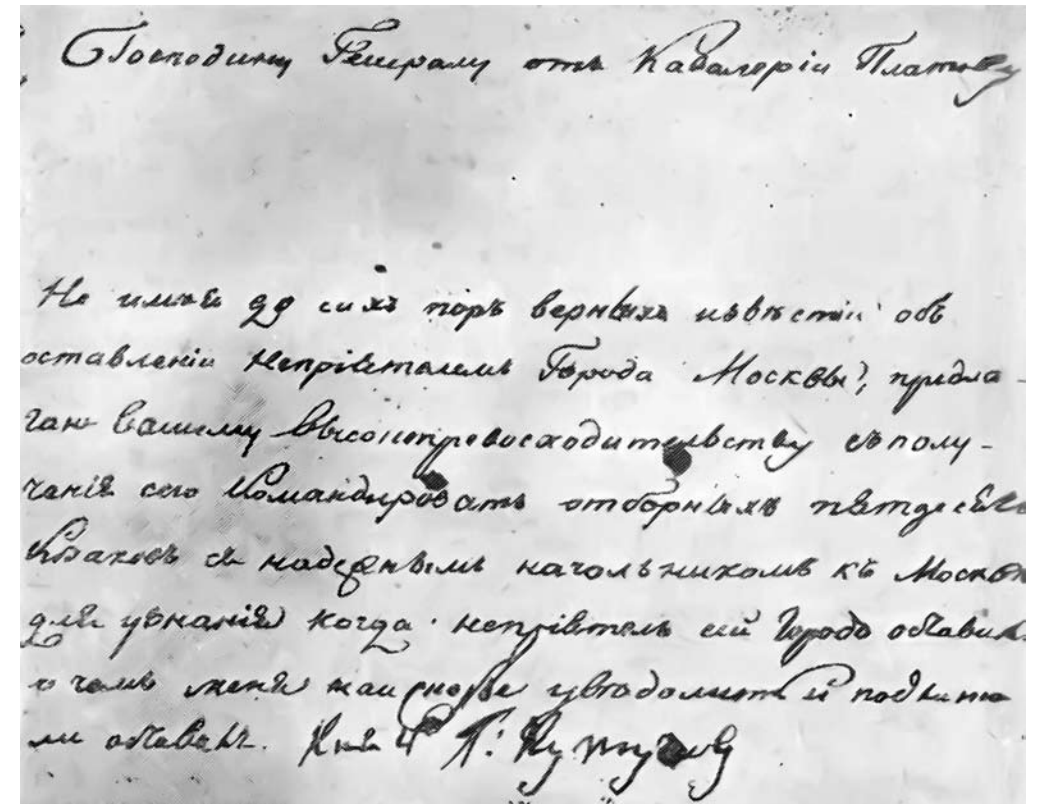 Господину Генералу отъ Кавалеріи Платову
Не имея до сихъ поръ верныхъ извѣстій объ
оставленіи непріятелемъ Города Москвы, предла-
гаю Вашему Высокопревосходительству съ полу-
ченія сего командировать отборныхъ пятдесятъ
Казаковъ съ надежнымъ начальникомъ къ Москвѣ
для узнанія когда непріятель сей Городъ оставилъ
о чемъ меня наискорѣе увѣдомить и
ли оставилъ. Князь Г: Кутузовъ